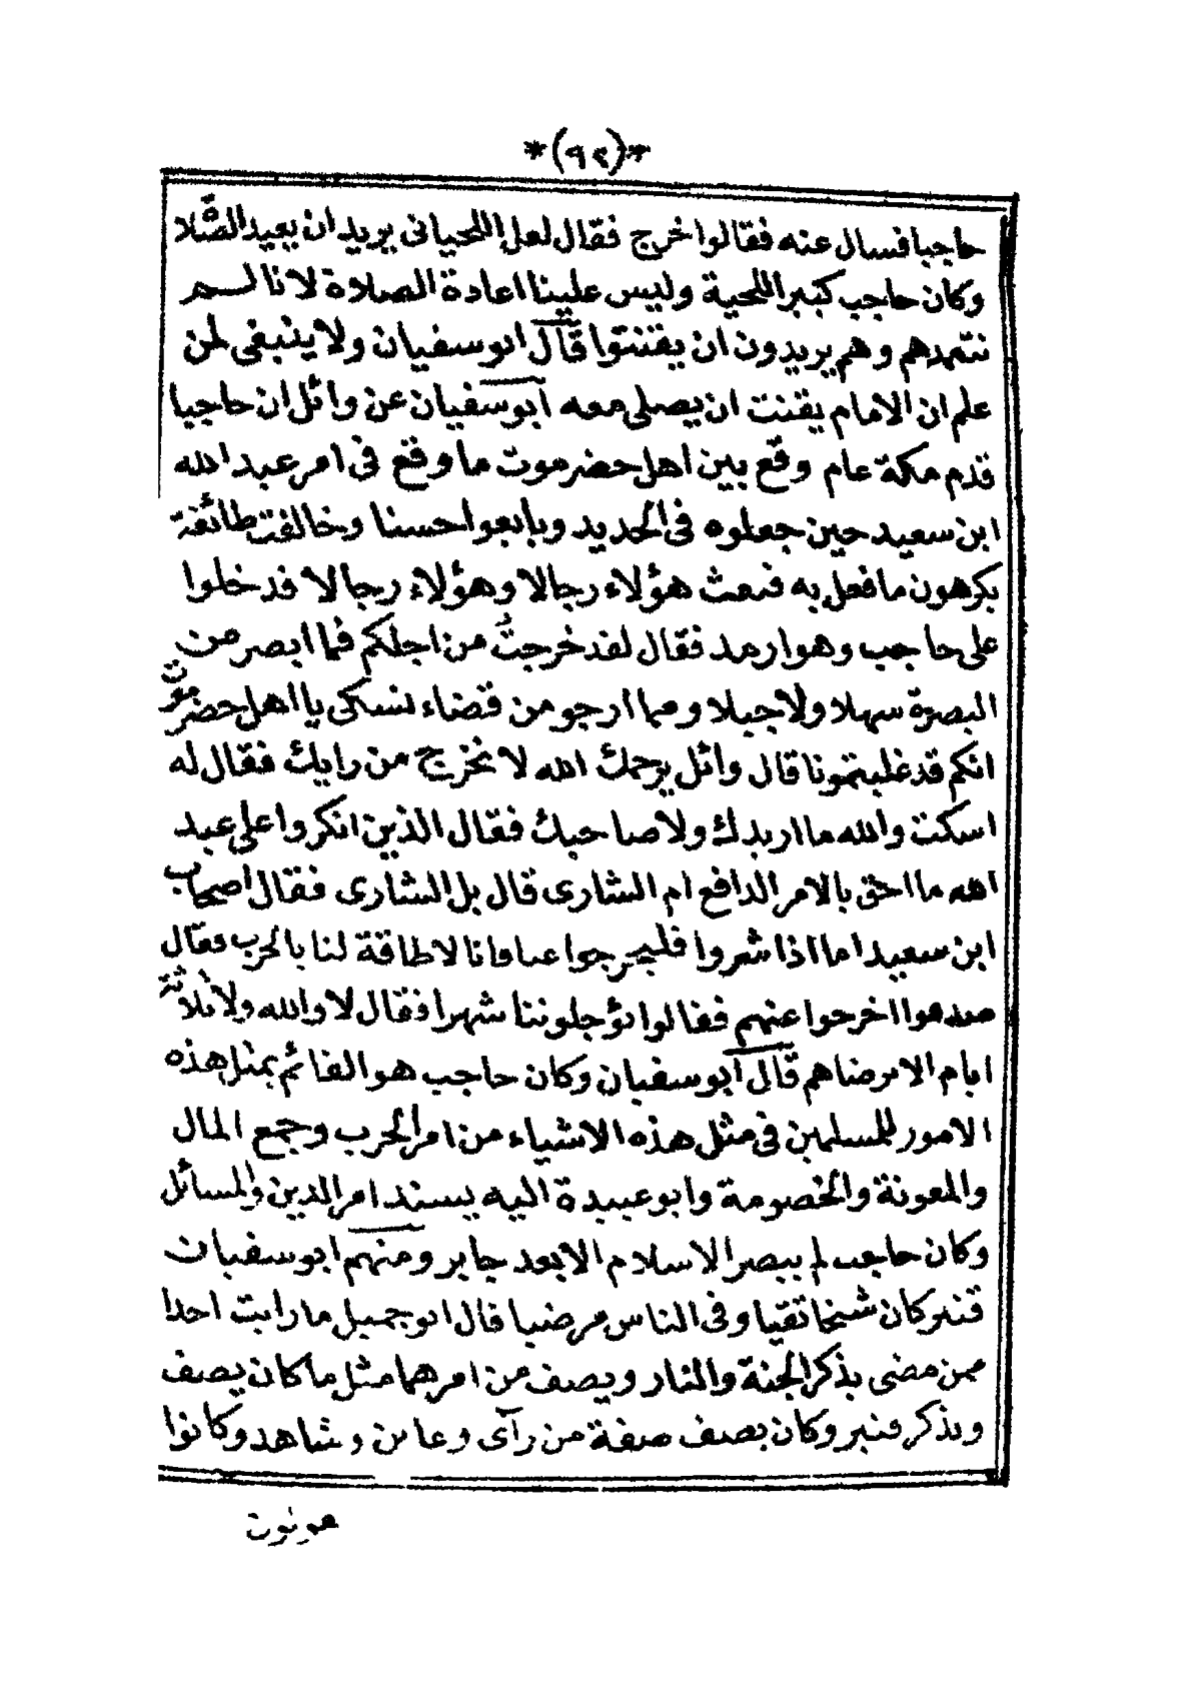 *(٩٢)*
حاجبا فسال عنه فقالوا خرج فقال لعل اللحياني يريد ان يعيد الصلاة
وكان حاجب كبير اللحية وليس علينا اعادة الصلاة لانا لم
نتعمدهم وهم يريدون ان يقنتوا قال ابو سفيان ولا ينبغي لمن
علم ان الامام يقنت ان يصلي معه ابو سفيان عن وائل ان حاجبا
قدم مكة عام وقع بين اهل حضرموت ما وقع في امر عبد الله
ابن سعيد حين جعلوه في الحديد وبايعوا حسنا وخالفت طائفة
يكرهون ما فعل به فبعث هؤلاء رجالا وهؤلاء رجالا فدخلوا
على حاجب وهو ارمد فقال لقد خرجت من اجلكم فما ابصر من
البصرة سهلا ولا جبلا ومما ارجو من قضاء نسكى يا اهل حضرموت
انكم قد غلبتمونا قال وائل يرحمك الله لا تخرج من رايك فقال له
اسكت والله ما اريدك ولا صاحبك فقال الذين انكروا على عبد
الله ما احق بالامر الدافع ام الشارى قال بل الشارى فقال اصحاب
ابن سعيد اما اذا شروا فليخرجوا عنا فانا لا طاقة لنا بالحرب فقال
صدقوا اخرجوا عنهم فقالوا تؤجلوننا شهرا فقال لا والله ولا ثلاثة
ايام الا برضاهم قال ابو سفيان وكان حاجب هو القائم بمثل هذه
الامور للمسلمين في مثل هذه الاشياء من امر الحرب وجمع المال
والمعونة والخصومة وابو عبيدة اليه يسند امر الدين والمسائل
وكان حاجب لم يبصر الاسلام الا بعد جابر ومنهم ابو سفيان
قنبر كان شيخا تقيا وفي الناس مرضيا قال ابو جميل ما رايت احدا
ممن مضى يذكر الجنة والنار ويصف من امرهما مثل ما كان يصف
ويذكر قنبر وكان يصف صفة من رآى وعاين وشاهد وكانوا